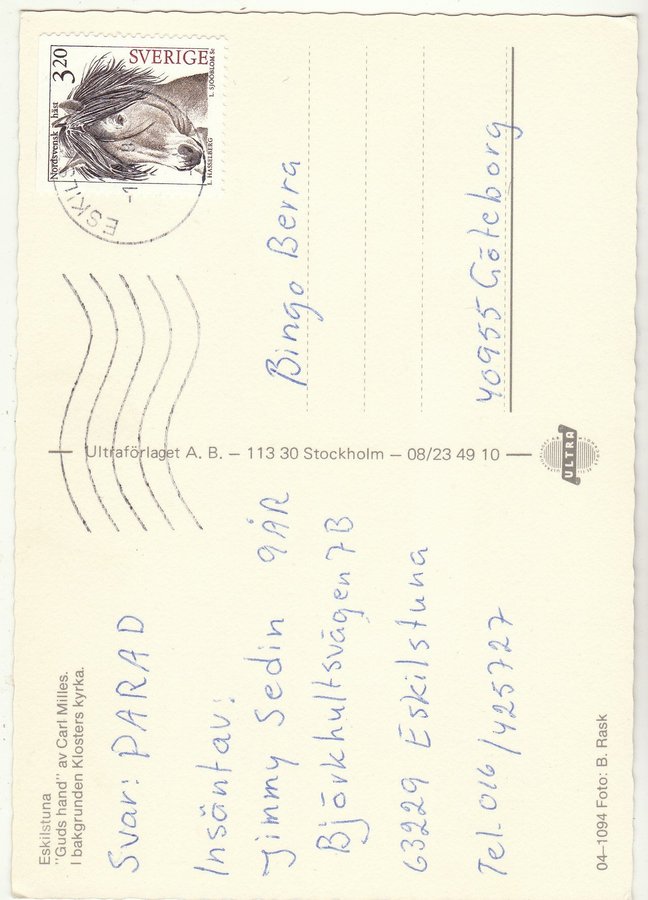 Eskilstuna
"Guds hand" av Carl Milles.
I bakgrunden Klosters kyrka.
Svar: PARAD
Insäntav:
Jimmy Sedin 9ÅR
Björkhultsvägen 7B
63229 Eskilstuna
Tel. 016/425727
04–1094 Foto: B. Rask
Ultraförlaget A. B. – 113 30 Stockholm – 08/23 49 10
ULTRA
SVERIGE
3.20
Nordsvensk häst
L. HASSELBERG
L. SJÖÖBLOM SC
ESKILS
Bingo Berra
40955 Göteborg